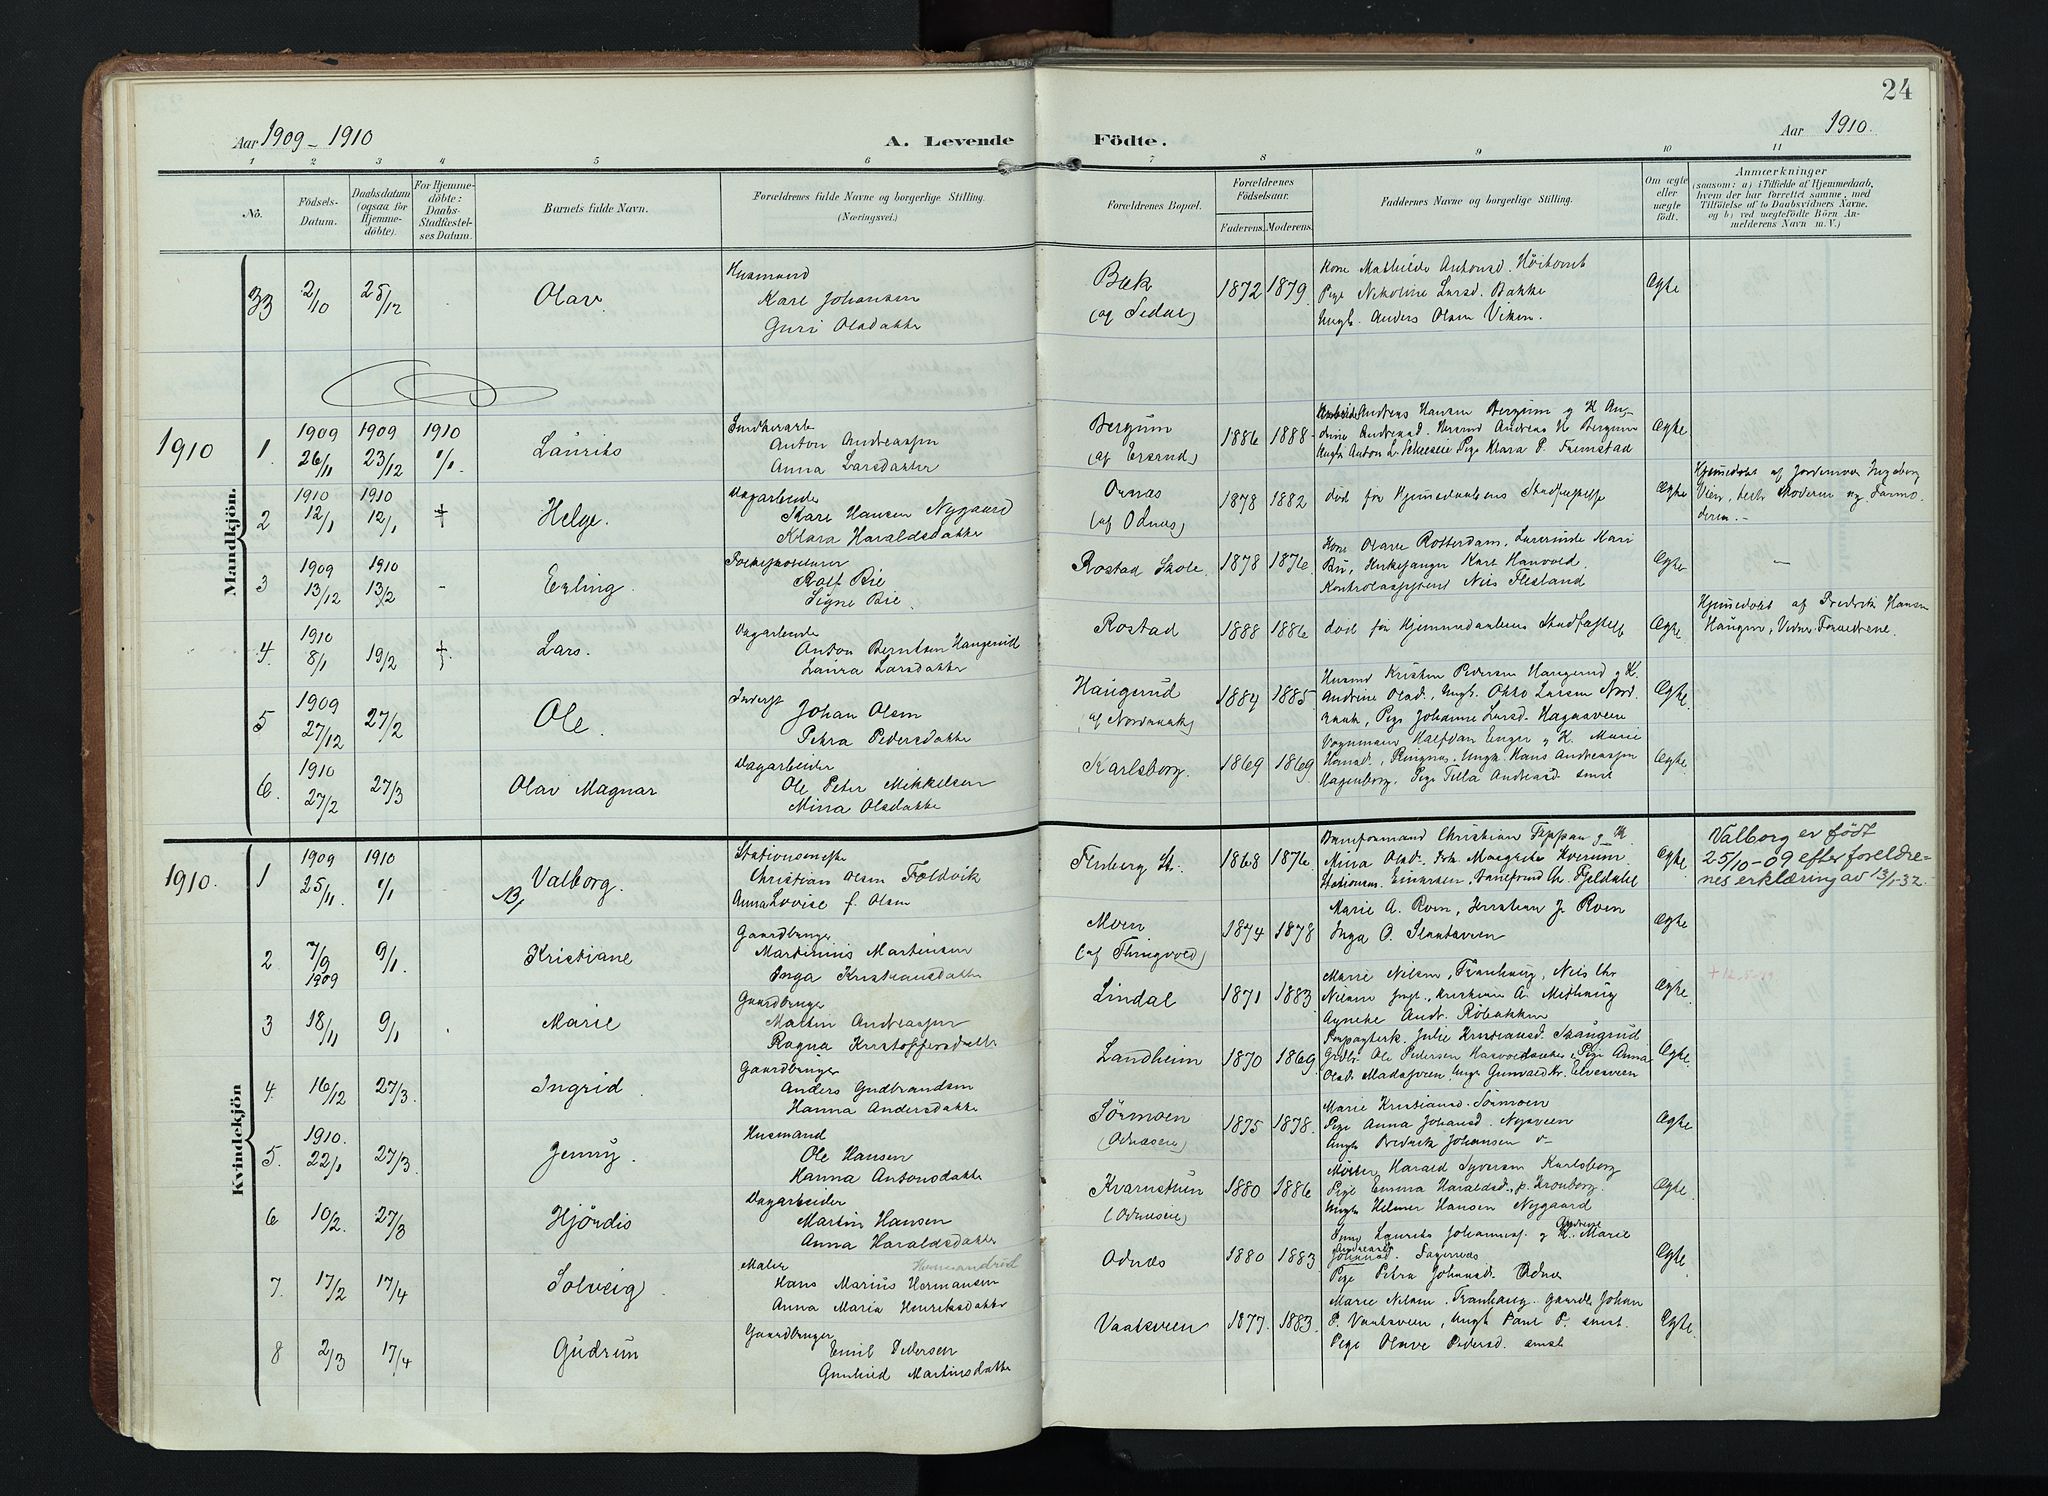 24
Aar 1909 - 1910
A. Levende
Födte.
Aar 1910.
1 2 3 4 5 6 7 8 9 10 11
Nö.
Födsels-
Datum.
Daabsdatum
(ogsaa for
Hjemme-
döbte).
For Hjemme-
döbte:
Daabs-
Stadfæstel-
ses Datum.
Barnets fulde Navn.
Forældrenes fulde Navne og borgerlige Stilling.
(Næringsvei.)
Forældrenes Bopæl.
Forældrenes
Födselsaar.
Faderens. Moderens.
Faddernes Navne og borgerlige Stilling.
Om ægte
eller
uægte
født.
Anmærkninger
(saasom: a) i Tilfælde af Hjemmedaab,
hvem der har forrettet samme, med
Tilföielse af to Daabsvidners Navne,
og b) ved uægtefödte Börn An-
melderens Navn m. V.)
Mandkjön.
33 2/10 28/12 Olav
Husmand
Karl Johansen
Guri Olsdatter
Bæk
1872 1879
Kone Mathilde Antonsd.
Pige Nikoline Larsd. Bakke
Ungk. Anders Olsen Viken.
Ægte
1910
1. 1909 26/11 1909 23/12 1910 1/1 Laurits
Anton Andreassen
Anna Larsdatter
Bergum
1886 1888
Andreas Hansen Bergum og K. An-
Pige Klara P. Fremstad
Ægte
2 1910 12/1 1910 12/1 † Helge.
Dagarbeider
Karl Hansen Nygaard
Klara Haraldsdatter
Odnæs
(af Odnæs)
1878 1882
död før Hjemmedaabens Stadfæstelse
Ægte
Hjemmedöbt af Jordemoder Ingeborg
3 1909 13/12 1910 13/2 - Erling.
Rolf Bie
Signe Bie.
Rostad Skole.
1878 1876
Kone Olave Rotterdam, Lærerinde Kari
Bu, Kirkesanger Karl Hanvold,
Kontrolassistent Nils Flesland
Ægte
-
4. 1910 8/1 19/2 † Lars.
Dagarbeider
Anton Berntsen Haugerud
Laura Larsdatter
Rostad
1888 1886
död før Hjemmedaabens Stadfæstelse
Ægte
Hjemmedöbt af Fredrik Hansen
Haugen, Vidner Forældrene.
5 1909 27/12 27/2 Ole.
Inderst
Johan Olsen
Petra Pedersdatter
Haugerud
1884 1885
Husmd Kristian Pedersen Haugerud og K.
Andrine Olsd., Ungk. Otto Larsen Nord-
Pige Johanne Larsd. Hagaaveen
Ægte
6. 1910 27/2 27/3 Olav Magnar
Dagarbeider
Ole Peter Mikkelsen
Mina Olsdatter
Karlsborg.
1869 1869
Vognmand Halfdan Enger og K. Marie
Ungk. Hans Andreassen
Hagenborg, Pige Tilla Andreasd. smst
Ægte
Kvindekjön
1910.
1 1909 25/11. 1910 1/1 NB Valborg.
Stationsmester
Christian Olsen Foldvik
Anna Lovise f. Olsen
Flesberg St.
1868 1876
Baneformand Christian Teppan og K.
Mina Olsd. Frk. Margrete Kverum.
Ægte
Valborg er født
25/10-09 efter foreldre-
nes erklæring av 13/1-32.
2 7/9 1909 9/1. Kristiane
Gaardbruger
Martinius Martinsen
Inga Kristiansdatter
Moen
(af Thingvold)
1874 1878
Marie A. Roen, Kristian J. Roen
Inga O. Slaatsveen
Ægte
3 18/11 9/1 Marie
Gaardbruger
Martin Andreassen
Ragna Kristoffersdatter
Lindal
1871 1883
Marie Nilsen, Tranhaug, Nils Chr
Nilsen Ungk., Kristian A. Midthaug
Agnethe Andr. Röbakken
Ægte
4. 16/12 27/3. Ingrid
Gaardbruger
Anders Gudbrandsen
Hanna Andersdatter
Landheim
1870 1869
Forpagterk. Julie Kristiansd. Skaugrud
Grdbr. Ole Pedersen, Pige Anna
Ægte
5. 1910. 22/1 27/3. Jenny.
Husmand
Ole Hansen
Hanna Antonsdatter
Sörmoen
(Odnæseie)
1875 1878.
Marie Kristiansd. Sörmoen
Pige Anna Johansd. Nysveen
Ungk. Fredrik Johansen
Ægte
6 10/2. 27/3 Hjördis
Dagarbeider
Martin Hansen
Anna Haraldsdatter
Kvarnstuen
(Odnæseie)
1880 1886
Harald Syversen Karlsborg
Pige Emma Haraldsd. p. Kronborg.
Ungk. Helmer Hansen Nygaard
Ægte.
7. 17/2 17/4 Solveig
Maler
Hans Marius Hermansen
Anna Maria Henriksdatter
Odnæs
1880 1883
Laurits Johanness. og K. Marie
Fagernæs
Pige Petra Johansd. Odnæs
Ægte
8 2/3 17/4 Gudrun
Gaardbruger
Emil Pedersen
Gunhild Martinsdatter
Vaatsveen
1877. 1883.
Marie Nilsen, Tranhaug, Gaardb. Johan
P. Vaatsveen, Ungk. Paul P. smst.
Pige Olave Pedersd. smst
Ægte.